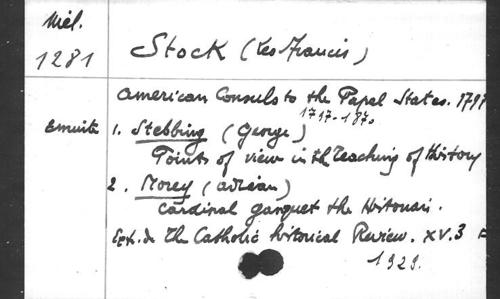 Miél.
1281
Stock (Leo Francis)
American Consuls to the Papal States. 1797
1717-1870
Ensuite 1. Stebbing (George)
Points of view in th Teaching of History
2. Morey (Adrian)
Cardinal Gasquet the Historian.
Ext. de The Catholic historical Review. XV.3
1929.